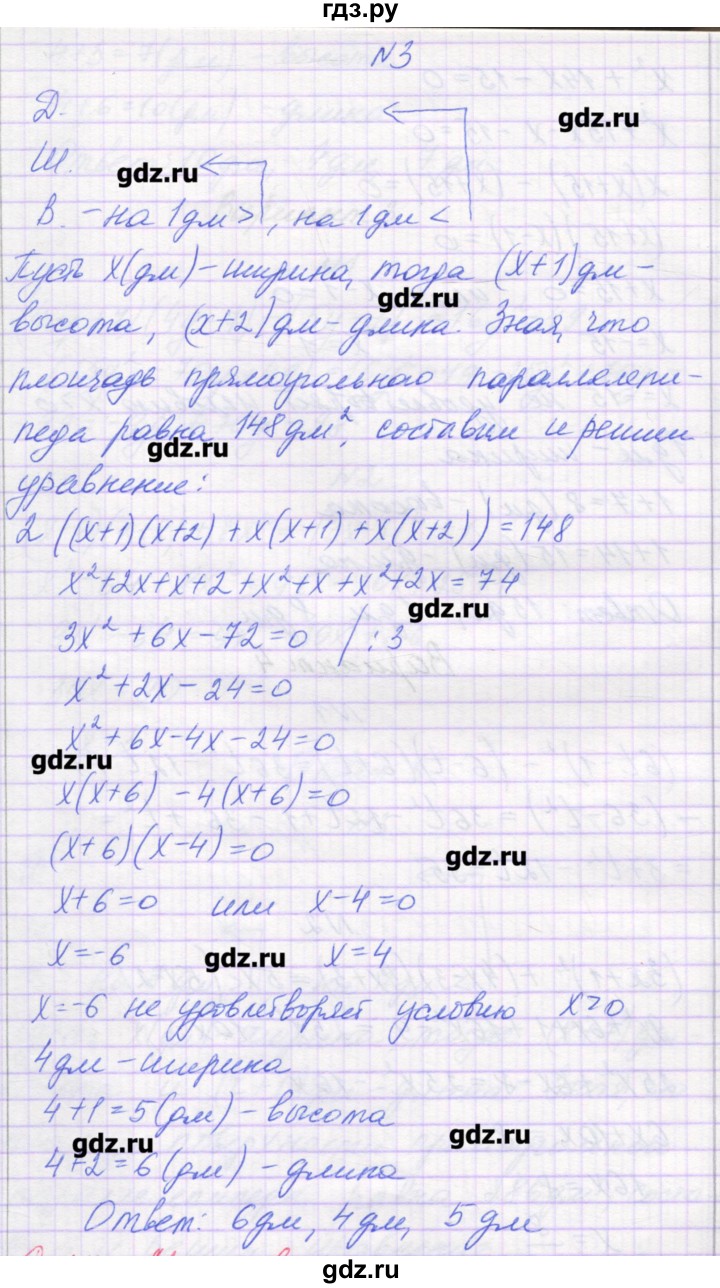 гдз.ру
№3
Д.
gdz.ru
Ш.
gdz.ru
В. - на 1 дм >, на 1 дм <
Пусть x(дм) - ширина, тогда (x+1)дм -
gdz.ru
высота, (x+2)дм - длина. Зная, что
площадь прямоугольнао параллелепи-
педа равна 148дм², составим и решим
gdz.ru
уравнение:
2((x+1)(x+2) + x(x+1) + x(x+2)) = 148
x²+2x+x+2+x²+x+x²+2x = 74
gdz.ru
3x² + 6x - 72 = 0 / : 3
x² + 2x - 24 = 0
x² + 6x - 4x - 24 = 0
gdz.ru
x(x+6) - 4(x+6) = 0
(x+6)(x-4) = 0
gdz.ru
x+6=0 или x-4=0
x=-6 x=4
gdz.ru
x=-6 не удовлетворяет условию x>0
4дм - ширина
4+1=5(дм) - высота
gdz.ru gdz.ru
4+2=6(дм) - длина
Ответ: 6дм, 4дм, 5дм
gdz.ru